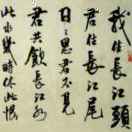 我住長江頭
君住長江尾
日日思君不見
君共飲長江水
此水幾時休此恨